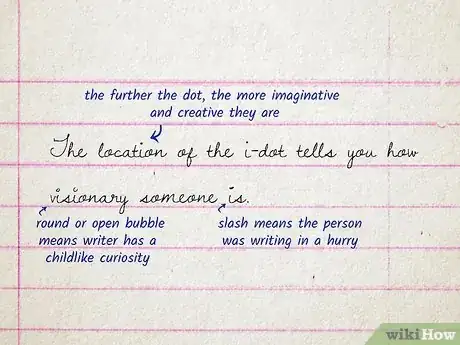 the further the dot, the more imaginative
and creative they are
The location of the i-dot tells you how
visionary someone is.
round or open bubble
means writer has a
childlike curiosity
slash means the person
was writing in a hurry
wikiHow